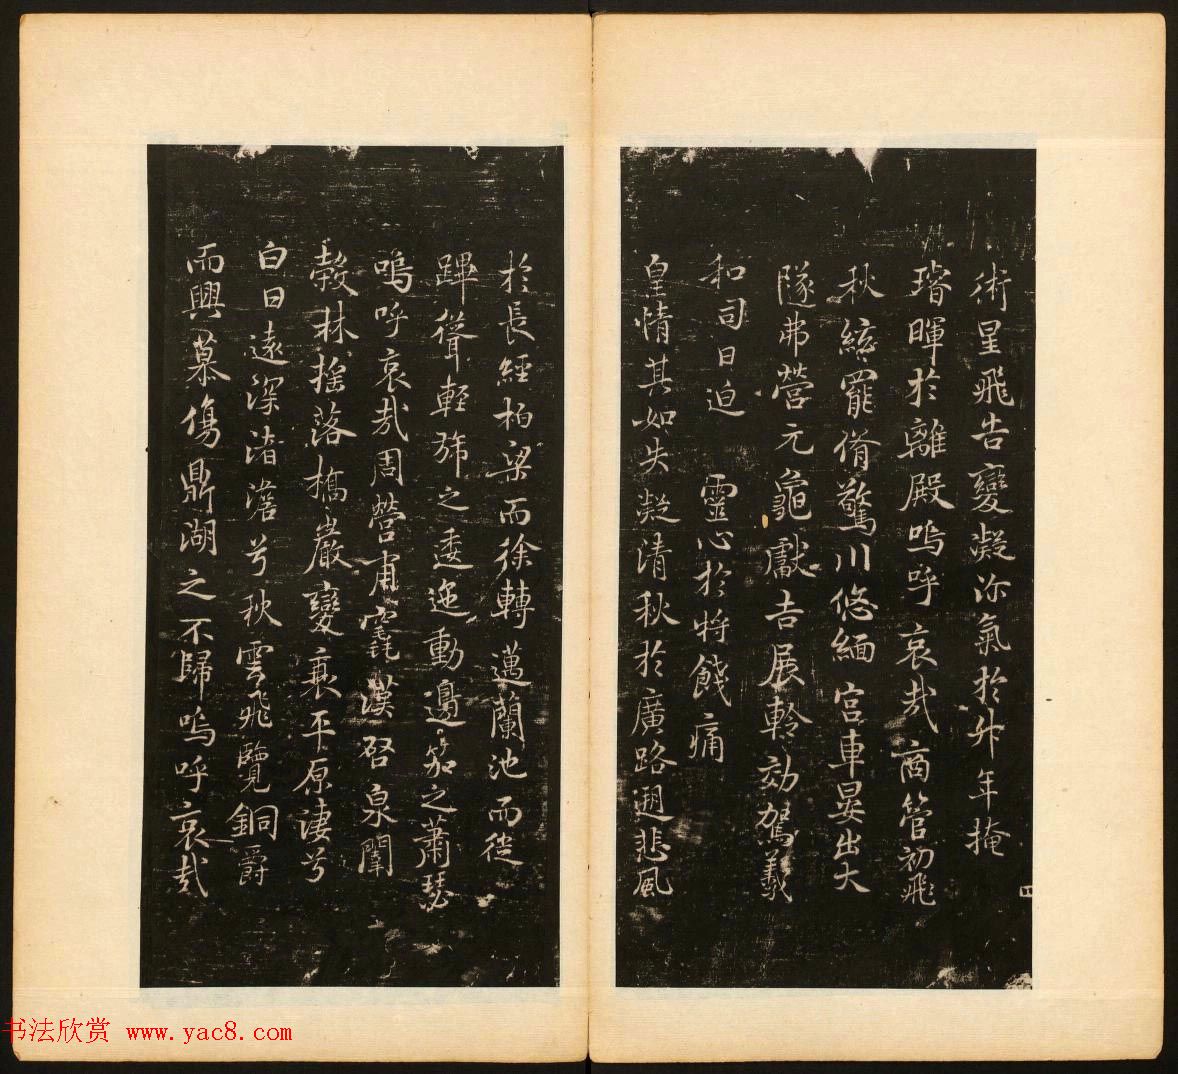 術星飛告變凝沴氣於升年掩
璿暉於離殿嗚呼哀哉商管初飛
秋緂罷脩驚川悠緬宮車晏出大
隧弗營元龜獻吉展軨効駕羲
和司日迫　靈心於將餞痛
皇情其如失凝清秋於廣路遡悲風
於長經柏梁而徐轉邁蘭池而從
蹕聳輕旆之逶迤動邊笳之蕭瑟
嗚呼哀哉周營甫竁漢啓泉闈
穀林搖落橋巖變衰平原淒兮
白日遠深渚澹兮秋雲飛覽銅爵
而興慕傷鼎湖之不歸嗚呼哀哉
四
书法欣赏 www.yac8.com